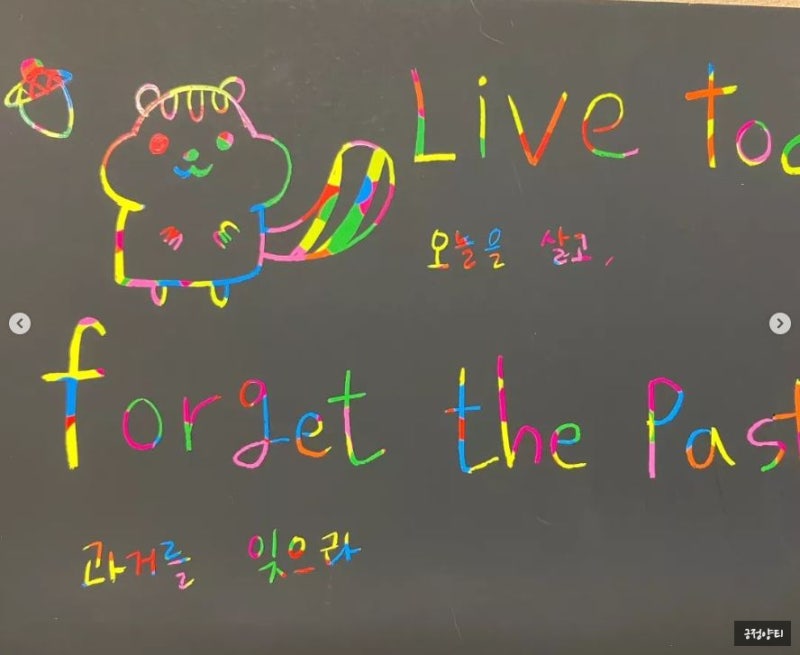 Live to
오늘을 살고,
forget the Past
과거를 잊으라
긍정양티